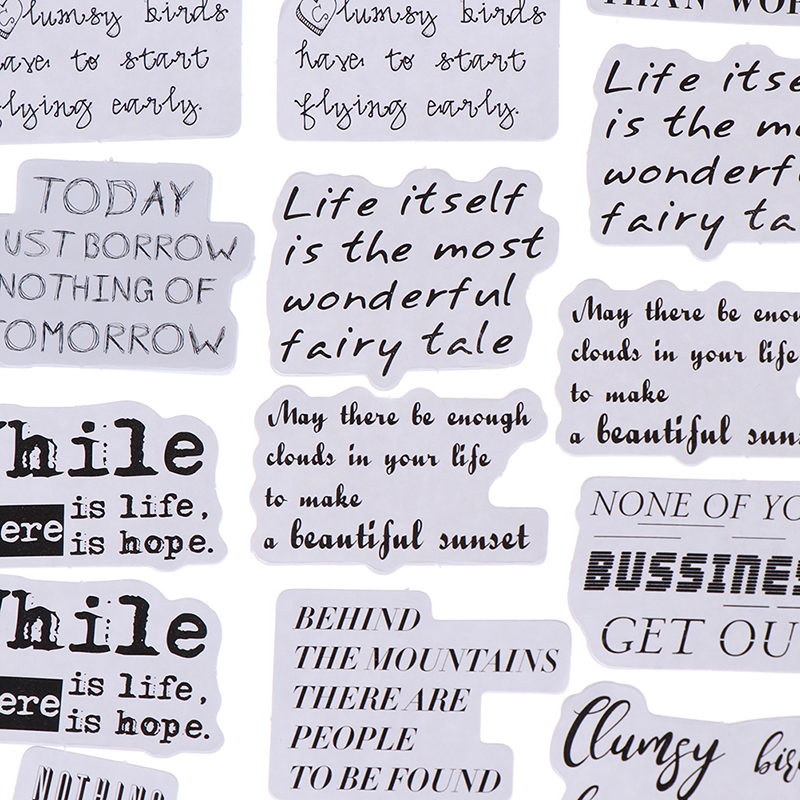 Clumsy birds
have to start
flying early.
Clumsy birds
have to start
flying early.
THAN WOR
Life itse
is the mo
wonderf
fairy ta
TODAY
UST BORROW
NOTHING OF
TOMORROW
Life itself
is the most
wonderful
fairy tale
May there be enou
clouds in your life
to make
a beautiful suns
While
ere is life,
is hope.
May there be enough
clouds in your life
to make
a beautiful sunset
NONE OF YO
BUSSINES
GET OU
While
ere is life,
is hope.
BEHIND
THE MOUNTAINS
THERE ARE
PEOPLE
TO BE FOUND
Clumsy bir
NOTHING